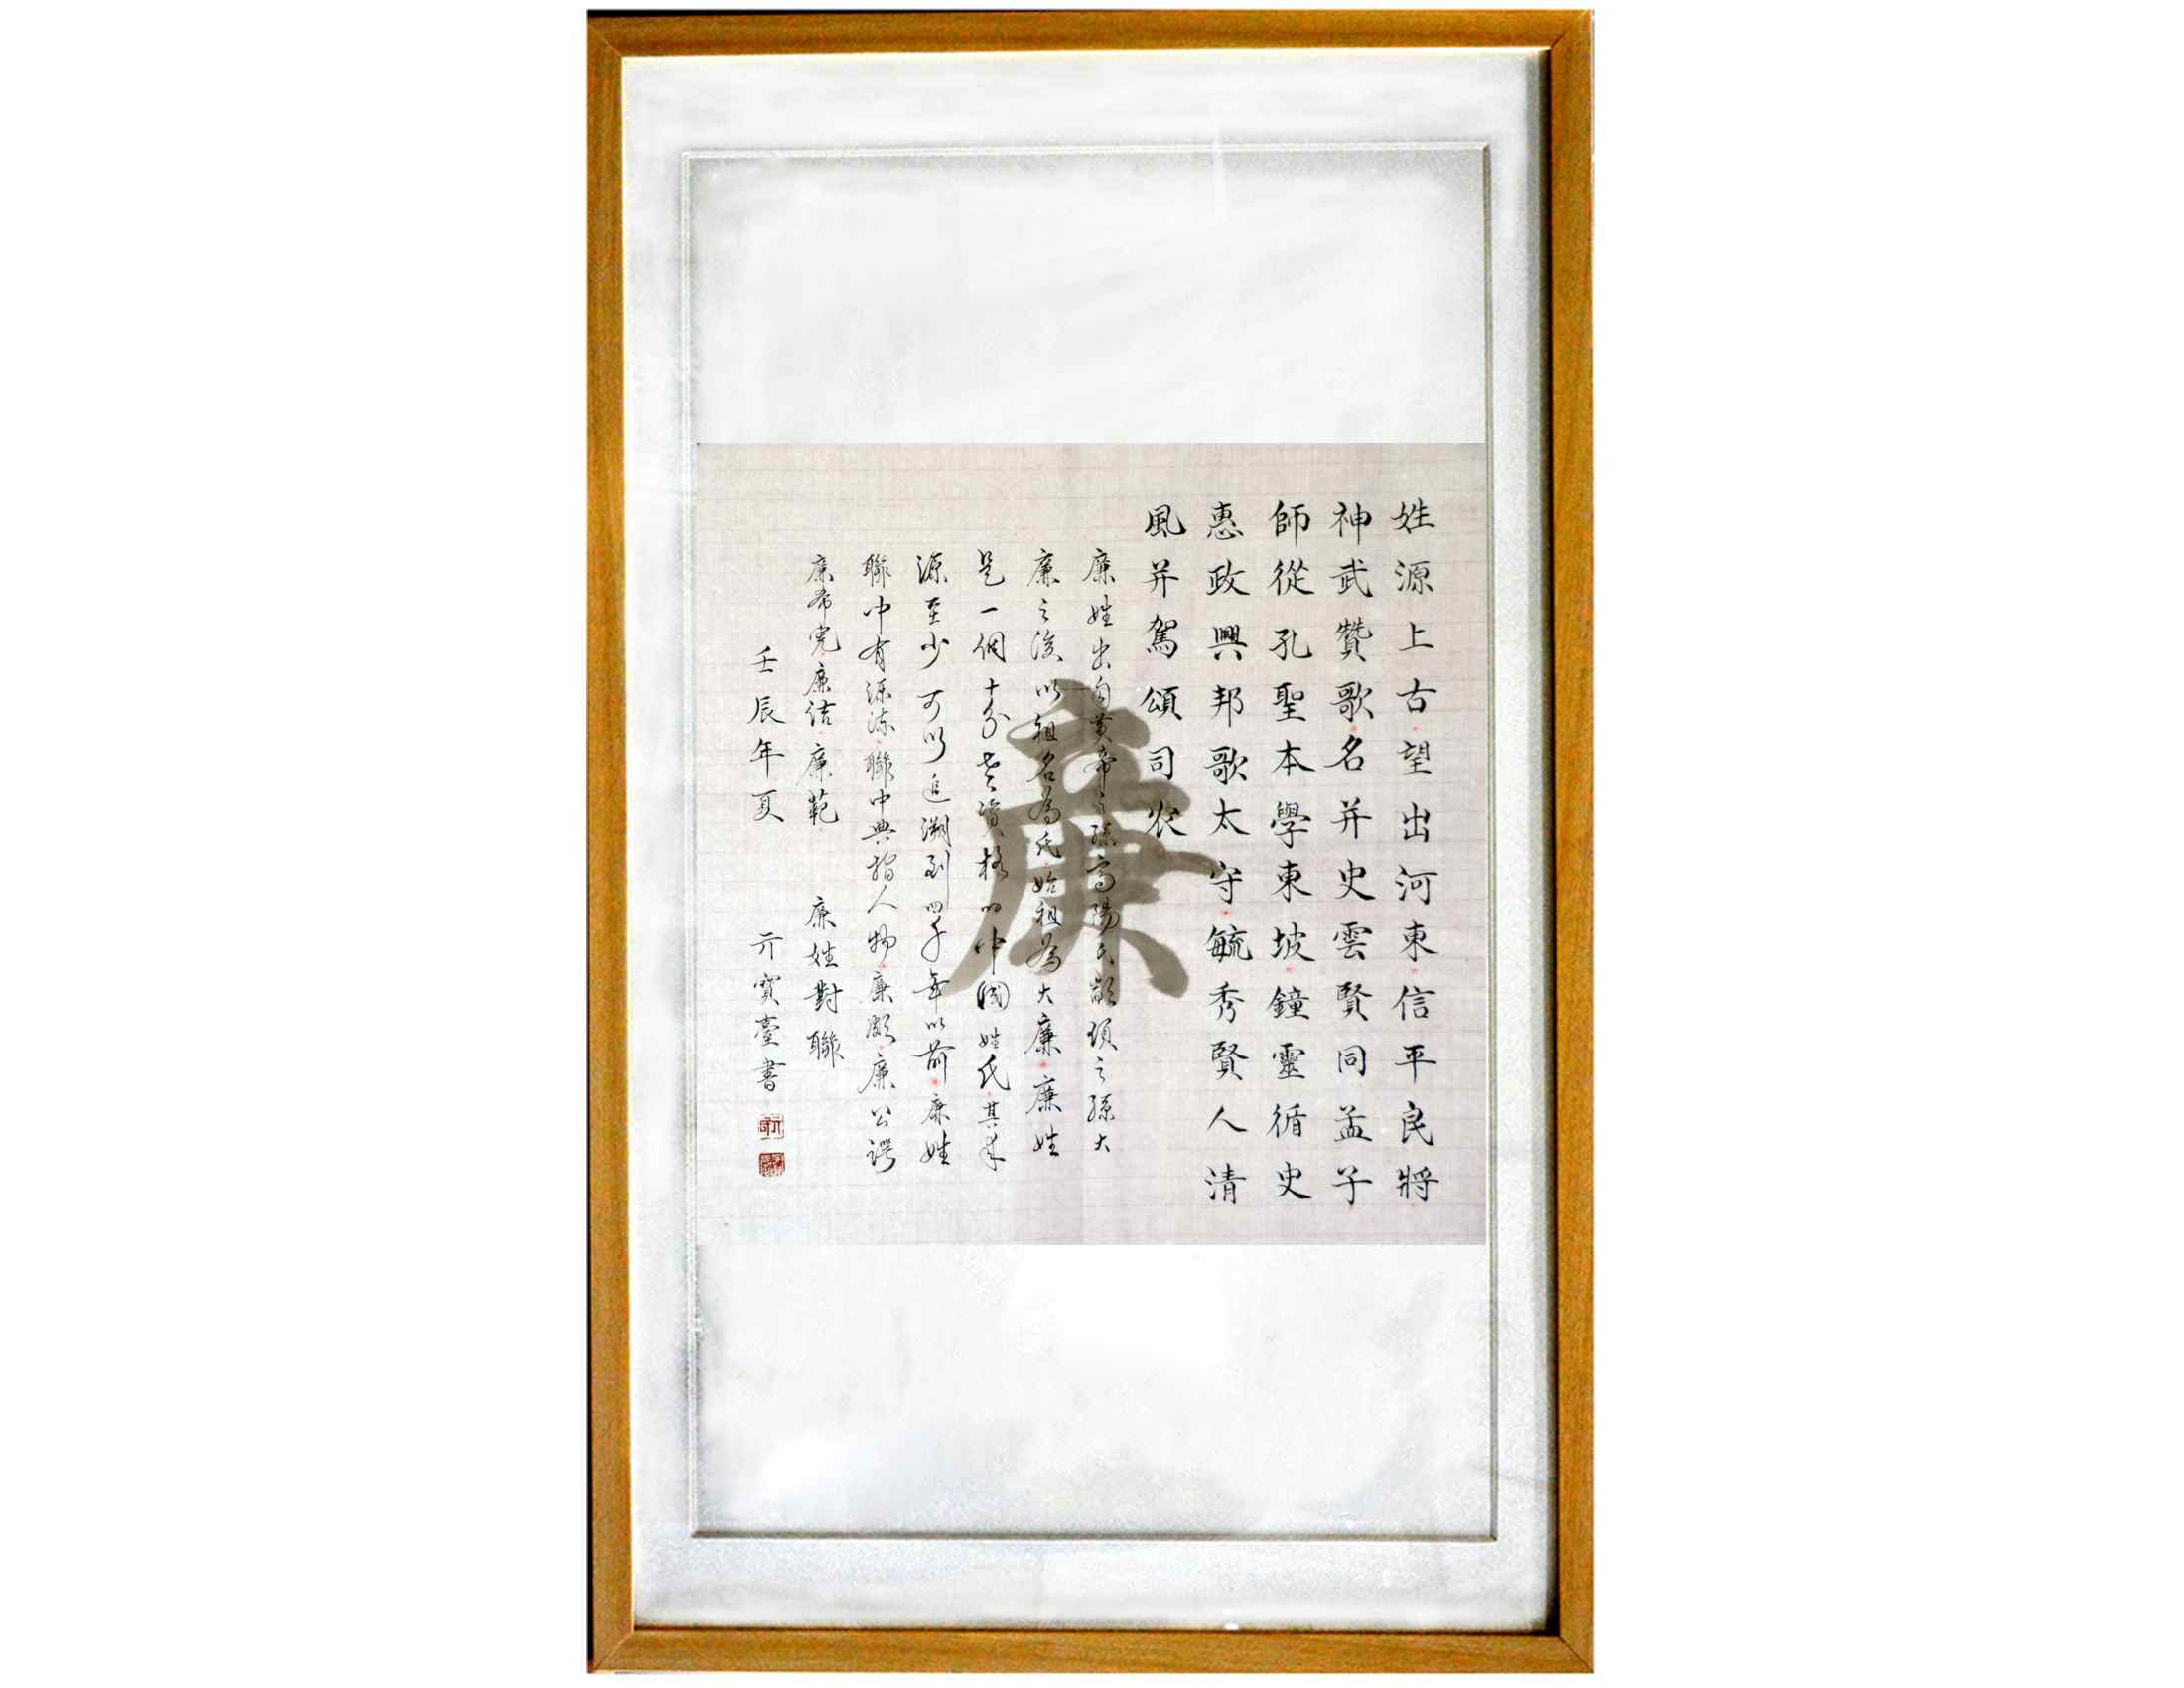 姓源上古望出河東信平民將
神武贊歌名并史雲賢同孟子
師從孔聖本學東坡鐘靈循史
惠政興邦歌太守毓秀賢人清
風并駕頌司农
廉
廉姓出自黄帝之孫高陽氏顓頊之孫大
廉之後以祖名為氏始祖為大廉廉姓
是一個十分老資格的中國姓氏其
源至少可以追溯到四千年以前廉姓
聯中有源流聯中典指人物廉頗廉公諤
廉希憲廉洁廉範 廉姓對聯
壬辰年夏 亓寶臺書